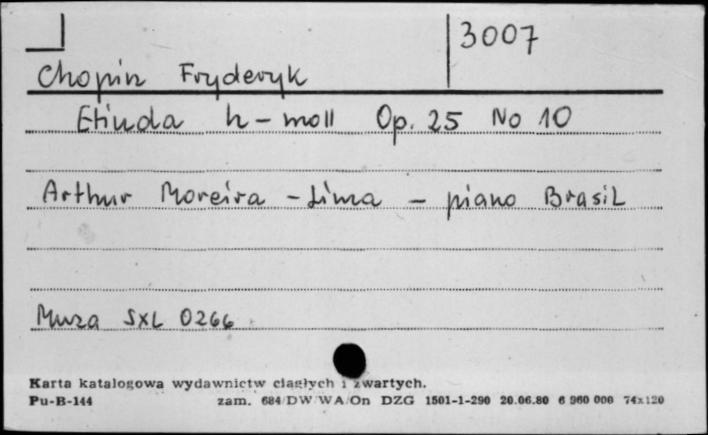 3007
Chopin Fryderyk
Etiuda h-moll Op. 25 No 10
Arthur Moreira - Lima - piano BrasiL
Muza SXL 0266
Karta katalogowa wydawnictw ciągłych i zwartych.
Pu-B-144 zam. 684/DW/WA/On DZG 1501-1-290 20.06.80 6 960 000 74x120